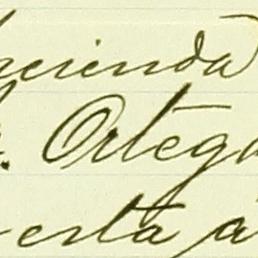 hacienda
. Ortega
esta á